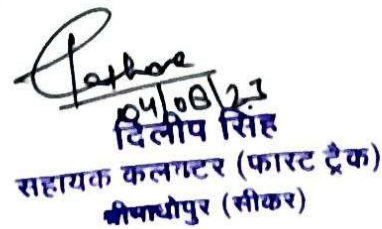 Rathore
04/08/23
दिलीप सिंह
सहायक कलक्टर (फास्ट ट्रैक)
श्रीमाधोपुर (सीकर)